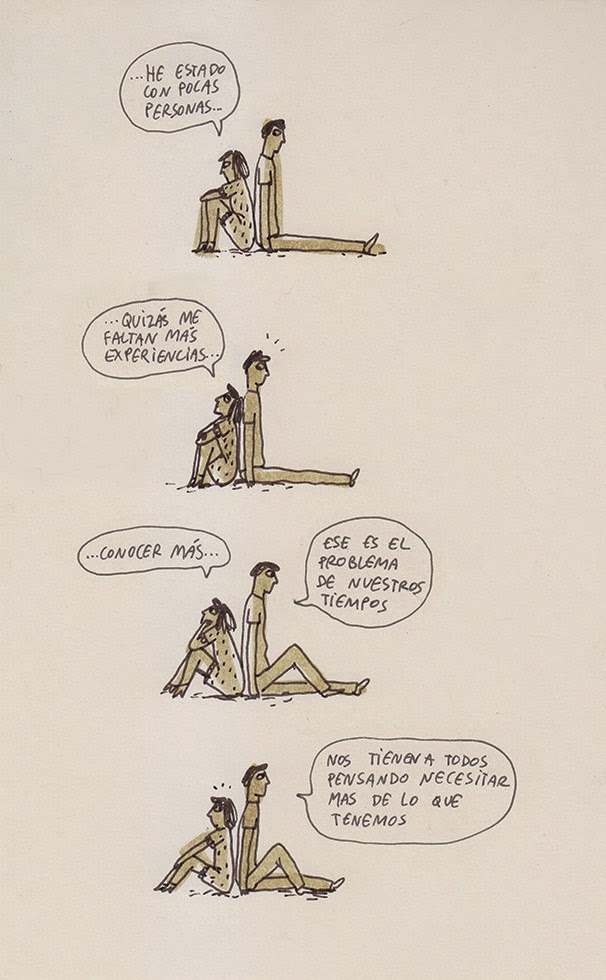 ...HE ESTADO
CON POCAS
PERSONAS...
...QUIZÁS ME
FALTAN MÁS
EXPERIENCIAS...
...CONOCER MÁS...
ESE ES EL
PROBLEMA
DE NUESTROS
TIEMPOS
NOS TIENEN A TODOS
PENSANDO NECESITAR
MAS DE LO QUE
TENEMOS